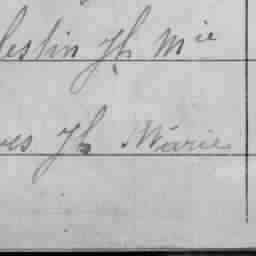 lestin Jh Mie
ves Jh Marie